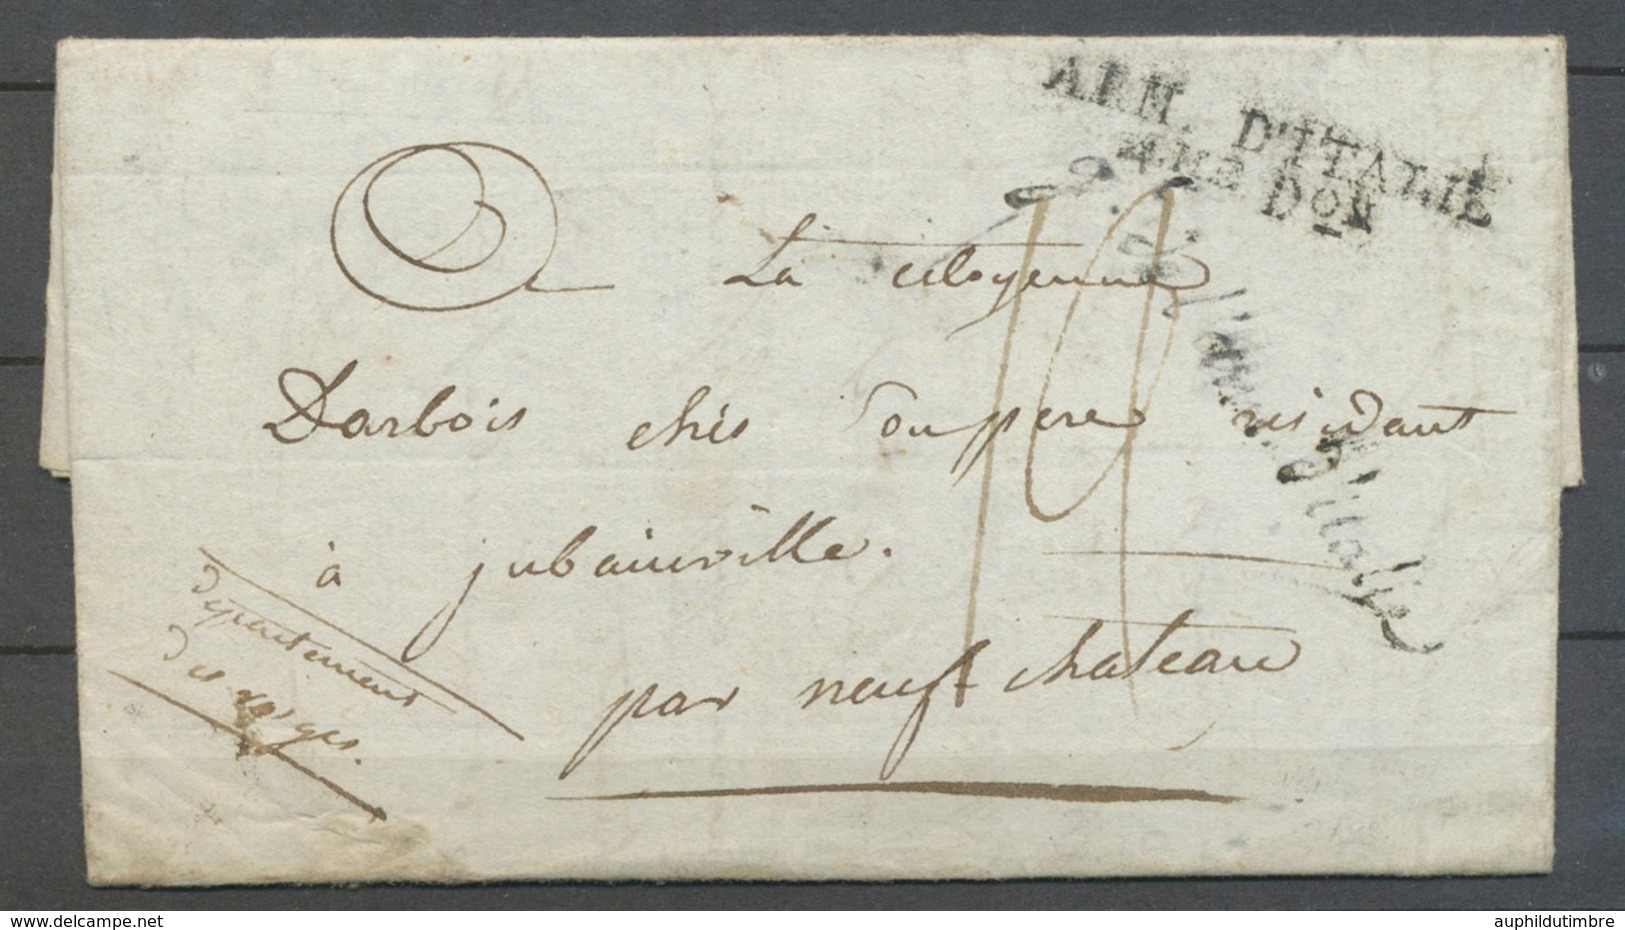 ARM. D'ITALIE
4ME DON
l'armée d'Italie
19
La citoyenne
Darbois chès Son pere residant
à jubainville.
par neufchateau
departement
des vosges.
delcampe.net
auphildutimbre